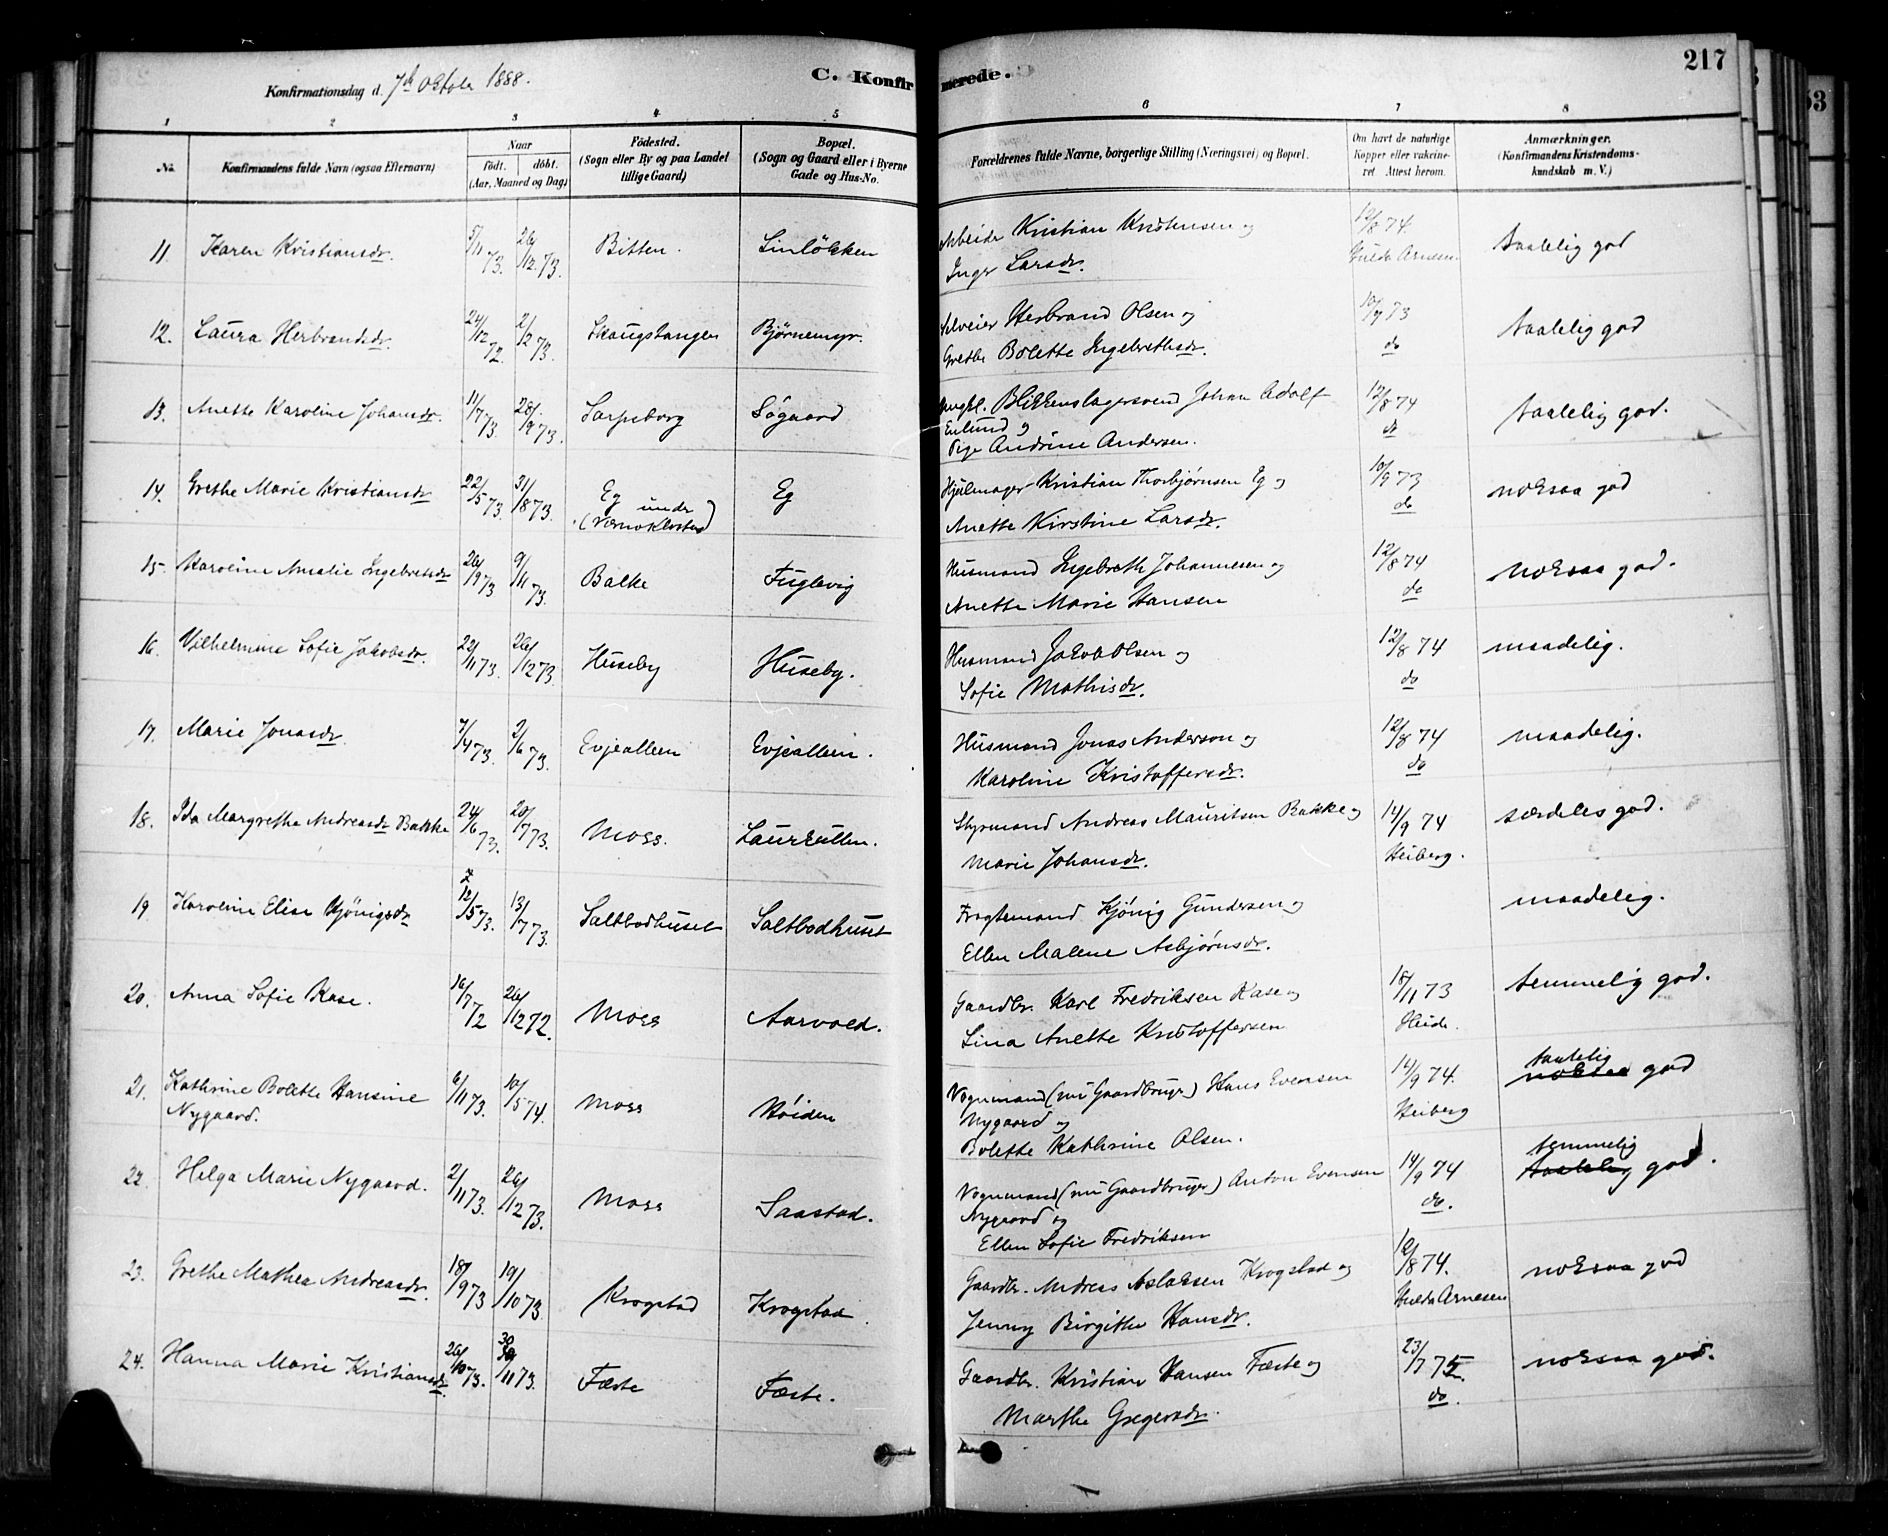 217
53
Konfirmationsdag d. 7de October 1888.
C. Konfirmerede.
1 2 3 4 5 6 7 8
No. Konfirmandens fulde Navn (ogsaa Efternavn) Naar født. døbt. (Aar, Maaned og Dag) Fødested. (Sogn eller By og paa Landet tillige Gaard) Bopæl. (Sogn og Gaard eller i Byerne Gade og Hus-No. Forældrenes fulde Navne, borgerlige Stilling (Næringsvei) og Bopæl. Om havt de naturlige Kopper eller vakcineret Attest herom. Anmærkninger. (Konfirmandens Kristendomskundskab m. V.)
11. Karen Kristiansdr. 5/11 73. 26/12 73. Bitten. Linløkken Arbeider Kristian Kristensen og 12/8 74. taalelig god
Inger Larsdr. Hulda Arnesen.
12. Laura Herbrandsdr. 24/12 72. 2/2 73. Skaugstangen Bjørnemyr. Selveier Herbrand Olsen og 10/9 73 taalelig god
Grethe Bolette Ingebrethsdr. do
13. Anette Karoline Johansdr. 11/7 73. 28/9 73. Sarpsborg Søgaard Ungkl. Blikkenslagersvend Johan Adolf 12/8 74 taalelig god.
Enlund og do
Pige Andrine Andersen.
14. Grethe Marie Kristiansdr 22/5 73. 31/8 73. Eg under Eg Hjulmager Kristian Thorbjørnsen Eg og 10/9 73 noksaa god
(Værnekloster) Anette Kirstine Larsdr. do
15. Karoline Amalie Ingebretsdr 26/9 73 9/11 73. Balke Fuglevig Husmand Ingebreth Johannesen og 12/8 74 noksaa god.
Anette Marie Hansen do
16. Vilhelmine Sofie Jakobsdr. 22/11 73. 26/12 73. Huseby Huseby. Husmand Jakob Olsen og 12/8 74 maadelig.
Sofie Mathisdr. do
17. Marie Jonasdr. 7/4 73. 2/6 73. Evjealleen Evjealleen. Husmand Jonas Anderson og 12/8 74 maadelig.
Karoline Kristoffersdr. do
18. Ida Margrethe Andreasdr Bakke 24/6 73. 20/7 73. Moss. Laurkullen. Styrmand Andreas Mauritsen Bakke og 14/9 74 særdeles god.
Marie Johansdr. Heiberg.
19 Karoline Elise Kjønigsdr 12/5 73. 13/7 73. Saltbodhuset Saltbodhuset Fragtemand Kjønig Gundersen og maadelig.
Ellen Malene Asbjørnsdr.
20. Anna Sofie Kase. 16/7 72 26/12 72. Moss Aarvold. Gaardbr. Karl Fredriksen Kase og 18/11 73 temmelig god.
Lina Anette Kristoffersen Heide.
21. Kathrine Bolette Hansine 6/11 73. 10/5 74. Moss Høiden Vognmand (nu Gaardbruger) Hans Evensen 14/9 74. taalelig noksaa god
Nygaard. Nygaard og Heiberg
Bolette Kathrine Olsen.
22. Helga Marie Nygaard. 2/11 73. 26/12 73. Moss Saastad. Vognmand (nu Gaardbruger) Anton Evensen 14/9 74 temmelig taalelig god.
Nygaard og do.
Ellen Sofie Fredriksen
23. Grethe Mathea Andreasdr. 18/9 73 19/10 73. Krogstad Krogstad. Gaardbr. Andreas Aslaksen Krogstad og 12/8 74. noksaa god
Jenny Birgithe Hansdr. Hulda Arnesen
24. Hanna Marie Kristiansdr 26/10 73. 30/11 73. Fæste Fæste. Gaardbr. Kristian Hansen Fæste og 23/7 75. noksaa god.
Marthe Gregersdr. do.